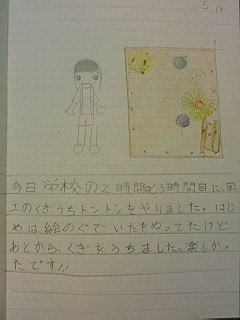 5/19
今日学校の2時間と3時間目に、図
工のくぎうちトントンをやりました。はじ
めは絵のぐでいたをぬってたけど、
あとから、くぎをうちました。楽しかっ
たです!!